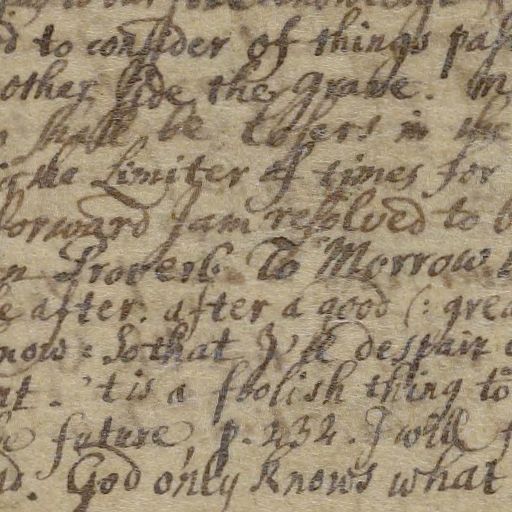 d to consider of things past
other side the grave. m
shall be losers in the
is the Limiter of times for
forward I am resolved to b
n Proverb. To Morrow.
e after. after a good (: grea
now = So that I'le despair
nt. 'tis a foolish thing to
he future, p. 232. I will f
d. God only knows what